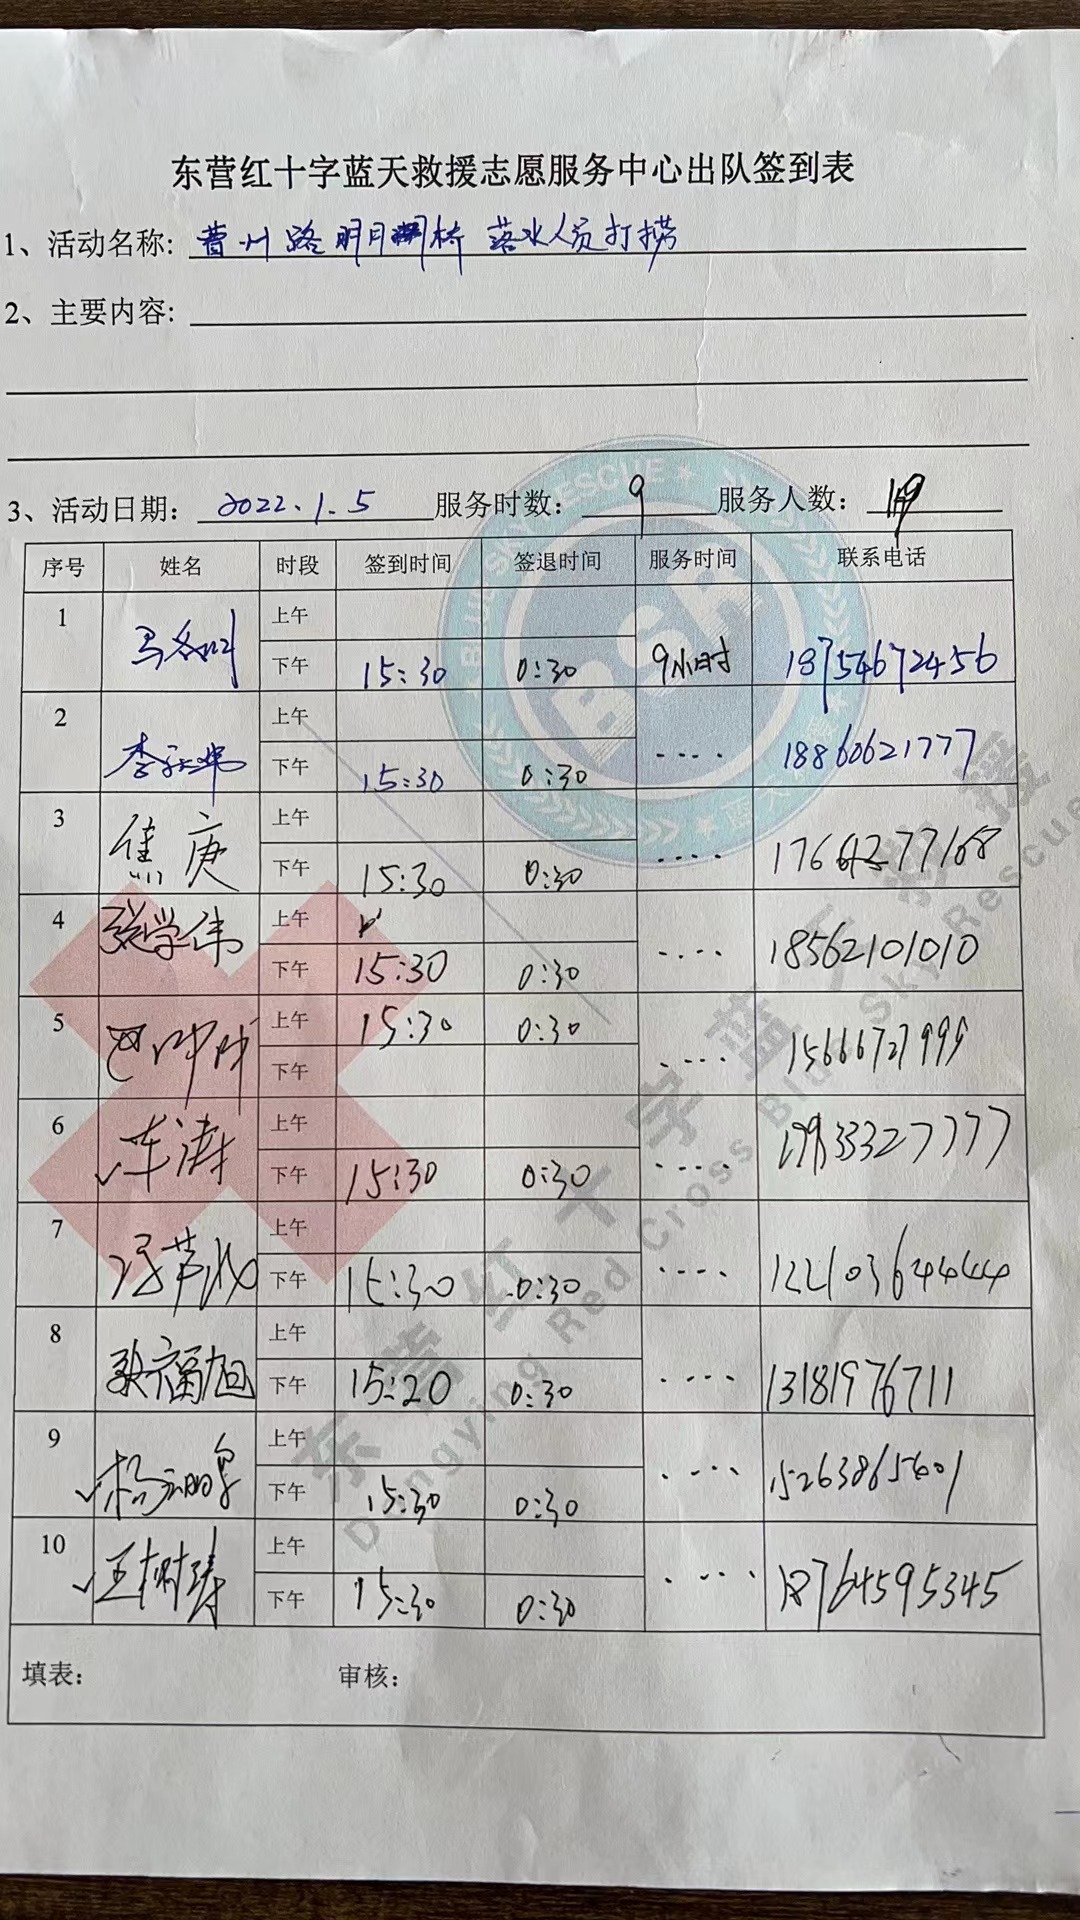 东营红十字蓝天救援志愿服务中心出队签到表
1、活动名称: 曹州路明月湖桥 落水人员打捞
2、主要内容:
3、活动日期: 2022.1.5 服务时数: 9 服务人数: 19
序号 姓名 时段 签到时间 签退时间 服务时间 联系电话
1 上午
下午 15:30 0:30 9小时 18754672456
2 上午
下午 15:30 0:30 18860621777
3 焦庚 上午
下午 15:30 0:30
4 张学伟 上午
下午 15:30 0:30 18562101010
5 上午 15:30 0:30 15666727999
下午
6 车涛 上午
下午 15:30 0:30
7 上午
下午 15:30 0:30
8 耿福旭 上午
下午 15:20 0:30 13181976711
9 上午
下午 15:30 0:30 15263865601
10 王树涛 上午
下午 15:30 0:30 18764595345
填表: 审核:
BLUE SKY RESCUE
BSR
东营红十字蓝天救援
Dongying Red Cross Blue Sky Rescue